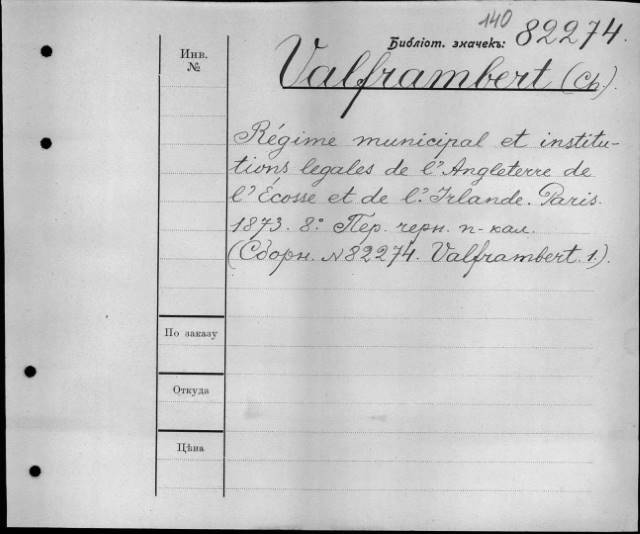 140
Библіот. значекъ: 82274.
Инв.
№
Valframbert (Ch.)
Régime municipal et institu-
tions legales de l'Angleterre de
l'Écosse et de l'Irlande. Paris.
1873. 8° Пер. черн. п-кал.
(Сборн. N 82274. Valframbert. 1.).
По заказу
Откуда
Цѣна